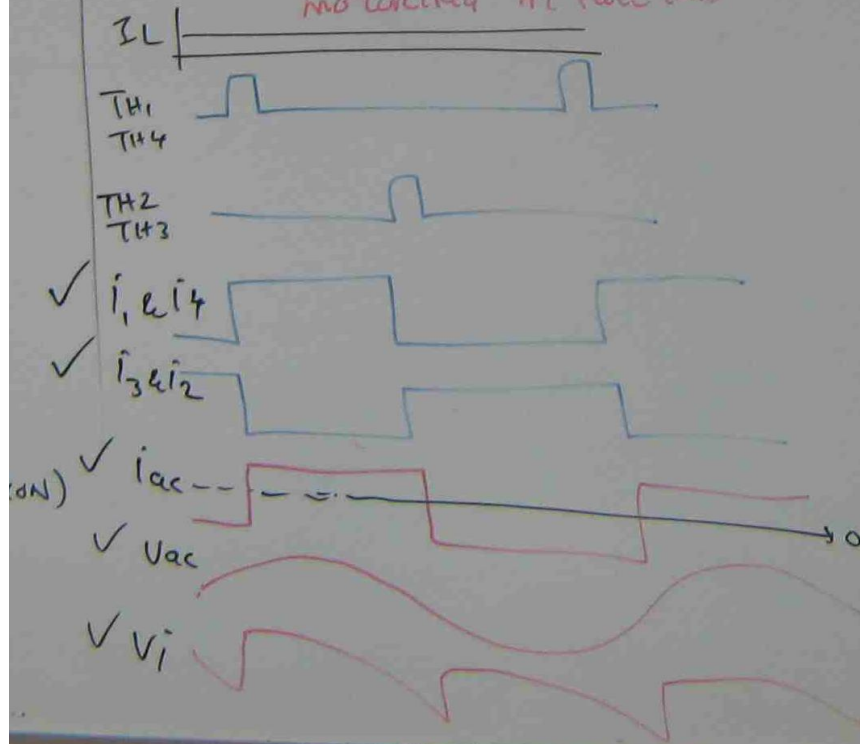 IL
TH1
TH4
TH2
TH3
✓ i1 & i4
✓ i3 & i2
✓ iac
✓ Vac
✓ Vi